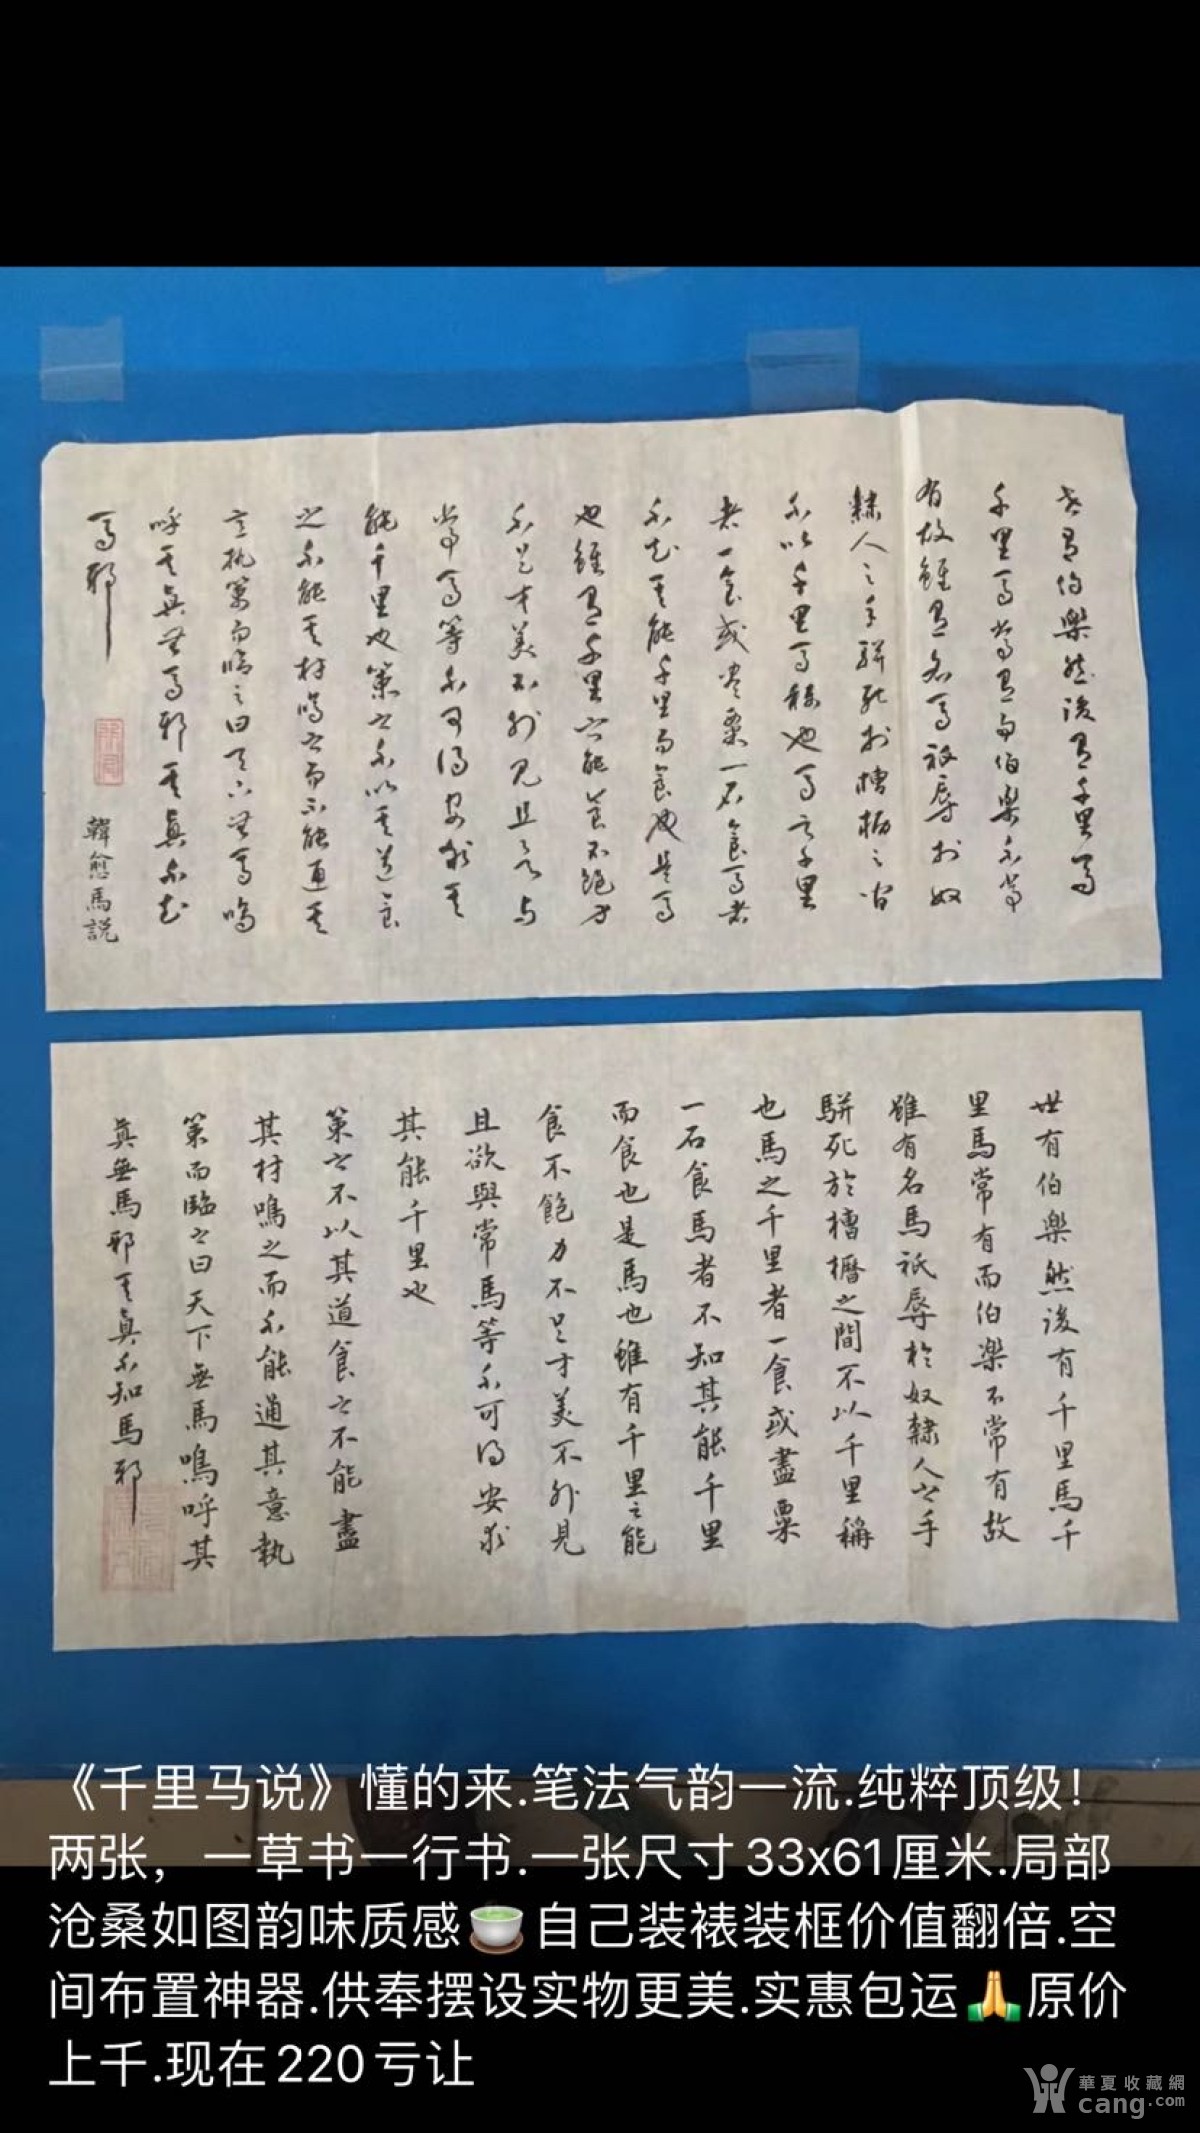 世有伯樂然後有千里馬
千里馬常有而伯樂不常
有故雖有名馬祇辱於奴
隸人之手駢死於槽枥之间
不以千里馬稱也馬之千里
者一食或盡粟一石食馬者
不知其能千里而食也是馬
也雖有千里之能食不飽力
不足才美不外見且欲与
常馬等不可得安求其
能千里也策之不以其道食
之不能其材鳴之而不能通其
意执策而臨之曰天下無馬嗚
呼其真無馬邪其真不知
馬邪
韓愈馬説
世有伯樂然後有千里馬千
里馬常有而伯樂不常有故
雖有名馬祇辱於奴隸人之手
駢死於槽櫪之間不以千里稱
也馬之千里者一食或盡粟
一石食馬者不知其能千里
而食也是馬也雖有千里之能
食不飽力不足才美不外見
且欲與常馬等不可得安求
其能千里也
策之不以其道食之不能盡
其材鳴之而不能通其意執
策而臨之曰天下無馬嗚呼其
真無馬邪其真不知馬邪
《千里马说》懂的来.笔法气韵一流.纯粹顶级！
两张，一草书一行书.一张尺寸33x61厘米.局部
沧桑如图韵味质感🍵自己装裱装框价值翻倍.空
间布置神器.供奉摆设实物更美.实惠包运🙏原价
上千.现在220亏让
華夏收藏網
cang.com